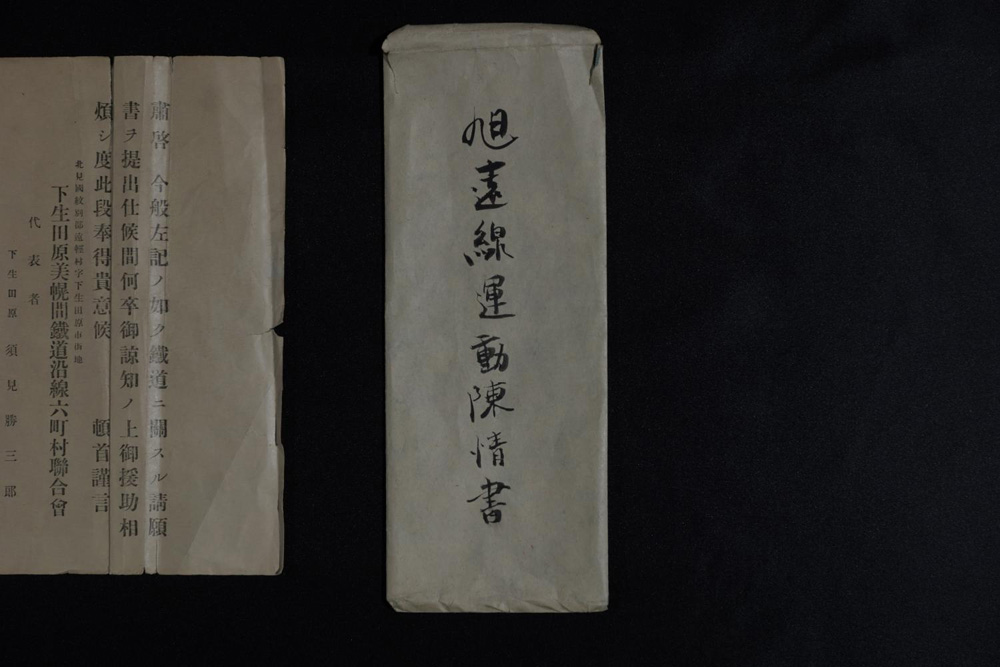 旭遠線運動陳情書
肅啓 今般左記ノ如ク鐵道ニ關スル請願
書ヲ提出仕候間何卒御諒知ノ上御援助相
煩シ度此段奉得貴意候 頓首謹言
北見國紋別郡遠輕村字下生田原市街地
下生田原美幌間鐵道沿線六町村聯合會
代表者
下生田原 須見勝三郎